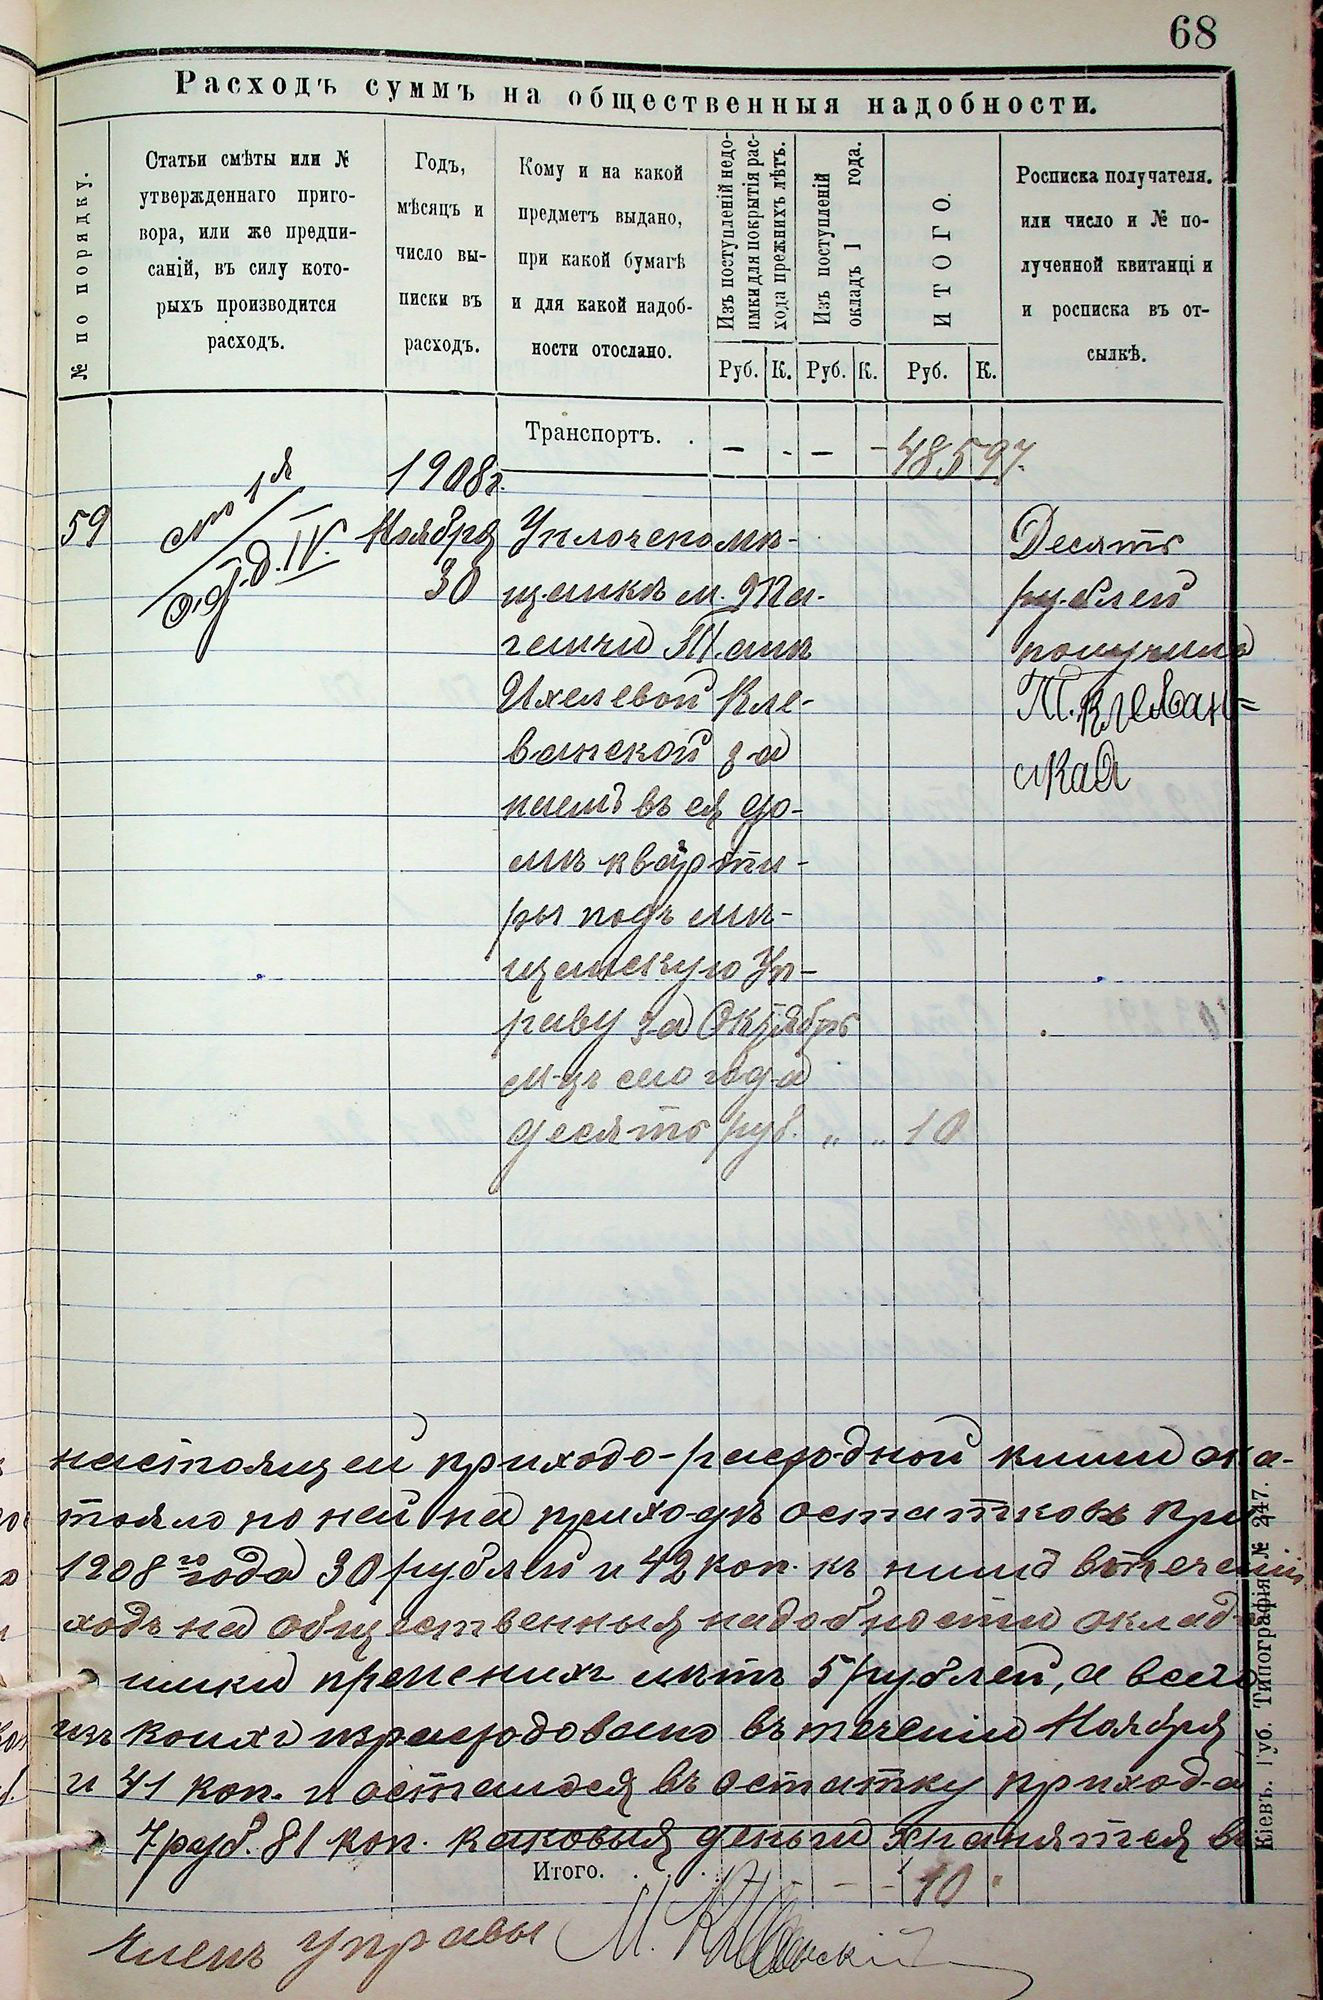 68
Расходъ суммъ на общественныя надобности.
№ по порядку.
Статьи смѣты или №
утвержденнаго приго-
вора, или же предпи-
саній, въ силу кото-
рыхъ производится
расходъ.
Годъ,
мѣсяцъ и
число вы-
писки въ
расходъ.
Кому и на какой
предметъ выдано,
при какой бумагѣ
и для какой надоб-
ности отослано.
Изъ поступленій недо-
имки для покрытія рас-
хода прежнихъ лѣтъ.
Изъ поступленій
окладъ 1 года.
ИТОГО.
Росписка получателя.
или число и № по-
лученной квитанці и
и росписка въ от-
сылкѣ.
Руб. К. Руб. К. Руб. К.
Транспортъ. . – - – - 485 97.
1908г.
59
ст 1я
IV.
Ноября
30
Уплочено мѣ-
щанкѣ м.
Тани
Ихелевой Кле-
ванской за
наемъ въ ея до-
мѣ кварти-
ры подъ мѣ-
щанскую Уп-
раву за Октябрь
м-цъ сего года
десять руб. „ „ 10
Десять
рублей
получила
Т. Клеван=
ская
настоящей приходо-расходной книги ока-
тояло по ней на приходѣ остатковъ при
1908го года 30 рублей и 42 коп. къ нимъ втечении
ходъ на общественныя надобности оклад-
имки прежнихъ лѣтъ 5 рублей, а всего
изъ коихъ израсходовано въ течении Ноября
и 41 коп. и осталося въ остатку прихода
7 руб. 81 коп. каковыя деньги хранятся в
Итого. . . . . - - - 10 "
Членъ управы М.
Кіевъ. Губ. Типографія. № 247.